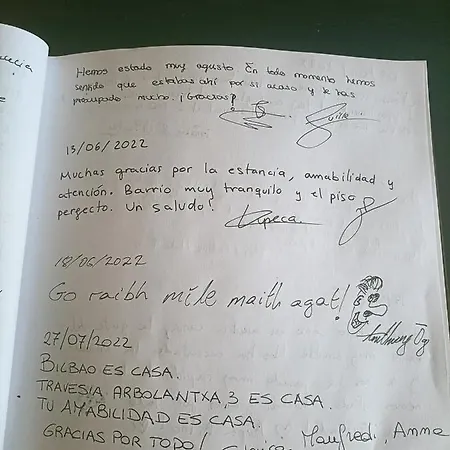 Hemos estado muy agusto. En todo momento hemos
sentido que estabas ahí por si acaso y te has
preocupado mucho. ¡Gracias!
13/06/2022
Muchas gracias por la estancia, amabilidad y
atención. Barrio muy tranquilo y el piso
perfecto. Un saludo!
18/06/2022
Go raibh míle maith agat!
Anthony
27/07/2022
BILBAO ES CASA.
TRAVESIA ARBOLANTXA, 3 ES CASA.
TU AMABILIDAD ES CASA.
GRACIAS POR TODO! Manfredi, Anna